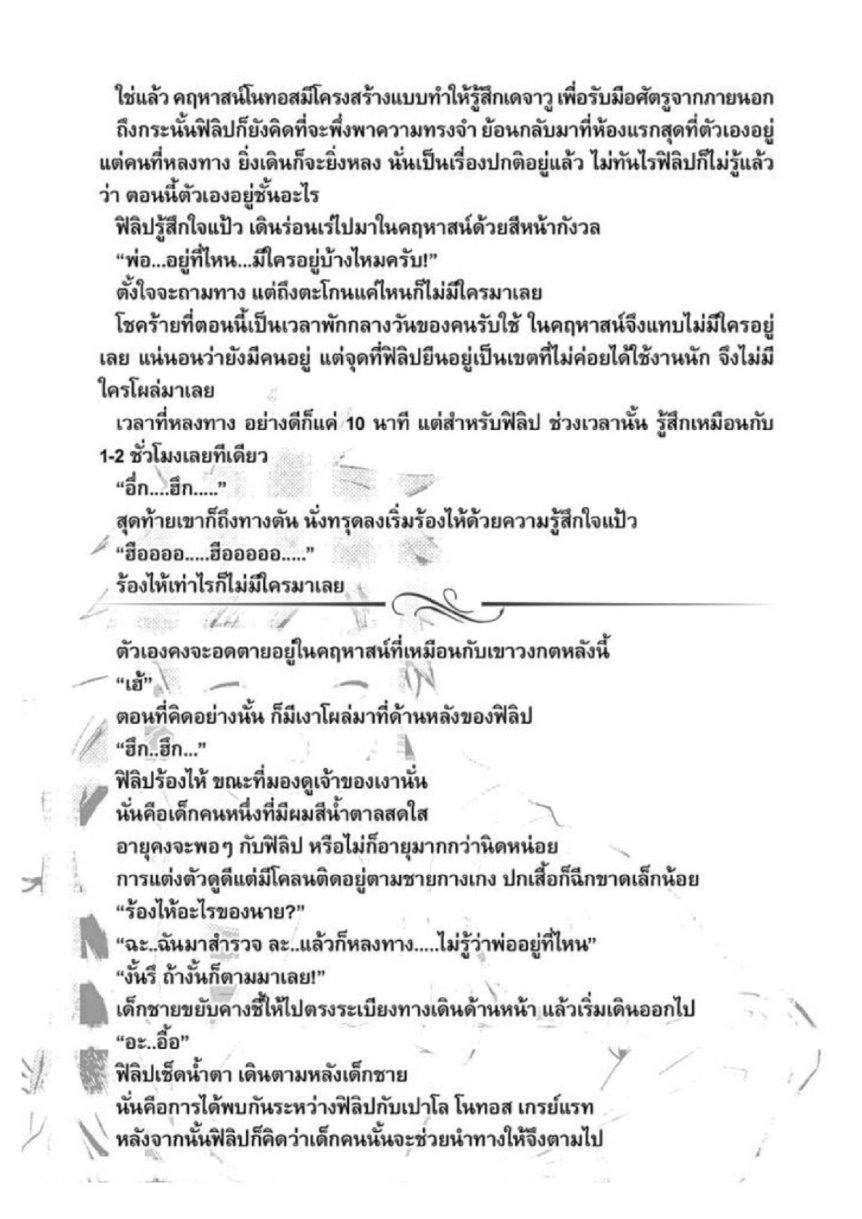 ใช่แล้ว คฤหาสน์โนทอสมีโครงสร้างแบบทำให้รู้สึกเดจาวู เพื่อรับมือศัตรูจากภายนอก
ถึงกระนั้นฟิลิปก็ยังคิดที่จะพึ่งพาความทรงจำ ย้อนกลับมาที่ห้องแรกสุดที่ตัวเองอยู่
แต่คนที่หลงทาง ยิ่งเดินก็จะยิ่งหลง นั่นเป็นเรื่องปกติอยู่แล้ว ไม่ทันไรฟิลิปก็ไม่รู้แล้ว
ว่า ตอนนี้ตัวเองอยู่ชั้นอะไร
ฟิลิปรู้สึกใจแป้ว เดินร่อนเร่ไปมาในคฤหาสน์ด้วยสีหน้ากังวล
“พ่อ...อยู่ที่ไหน...มีใครอยู่บ้างไหมครับ!”
ตั้งใจจะถามทาง แต่ถึงตะโกนแค่ไหนก็ไม่มีใครมาเลย
โชคร้ายที่ตอนนี้เป็นเวลาพักกลางวันของคนรับใช้ ในคฤหาสน์จึงแทบไม่มีใครอยู่
เลย แน่นอนว่ายังมีคนอยู่ แต่จุดที่ฟิลิปยืนอยู่เป็นเขตที่ไม่ค่อยได้ใช้งานนัก จึงไม่มี
ใครโผล่มาเลย
เวลาที่หลงทาง อย่างดีก็แค่ 10 นาที แต่สำหรับฟิลิป ช่วงเวลานั้น รู้สึกเหมือนกับ
1-2 ชั่วโมงเลยทีเดียว
“อึ่ก....ฮึก.....”
สุดท้ายเขาก็ถึงทางตัน นั่งทรุดลงเริ่มร้องไห้ด้วยความรู้สึกใจแป้ว
“ฮืออออ.....ฮืออออออ.....”
ร้องไห้เท่าไรก็ไม่มีใครมาเลย
ตัวเองคงจะอดตายอยู่ในคฤหาสน์ที่เหมือนกับเขาวงกตหลังนี้
“เฮ้”
ตอนที่คิดอย่างนั้น ก็มีเงาโผล่มาที่ด้านหลังของฟิลิป
“ฮึก..ฮึก...”
ฟิลิปร้องไห้ ขณะที่มองดูเจ้าของเงานั่น
นั่นคือเด็กคนหนึ่งที่มีผมสีน้ำตาลสดใส
อายุคงจะพอๆ กับฟิลิป หรือไม่ก็อายุมากกว่านิดหน่อย
การแต่งตัวดูดีแต่มีโคลนติดอยู่ตามชายกางเกง ปกเสื้อก็ฉีกขาดเล็กน้อย
“ร้องไห้อะไรของนาย?”
“ฉะ..ฉันมาสำรวจ ละ..แล้วก็หลงทาง.....ไม่รู้ว่าพ่ออยู่ที่ไหน”
“งั้นรึ ถ้างั้นก็ตามมาเลย!”
เด็กชายขยับคางชี้ให้ไปตรงระเบียงทางเดินด้านหน้า แล้วเริ่มเดินออกไป
“อะ..อื้อ”
ฟิลิปเช็ดน้ำตา เดินตามหลังเด็กชาย
นั่นคือการได้พบกันระหว่างฟิลิปกับเปาโล โนทอส เกรย์แรท
หลังจากนั้นฟิลิปก็คิดว่าเด็กคนนั้นจะช่วยนำทางให้จึงตามไป